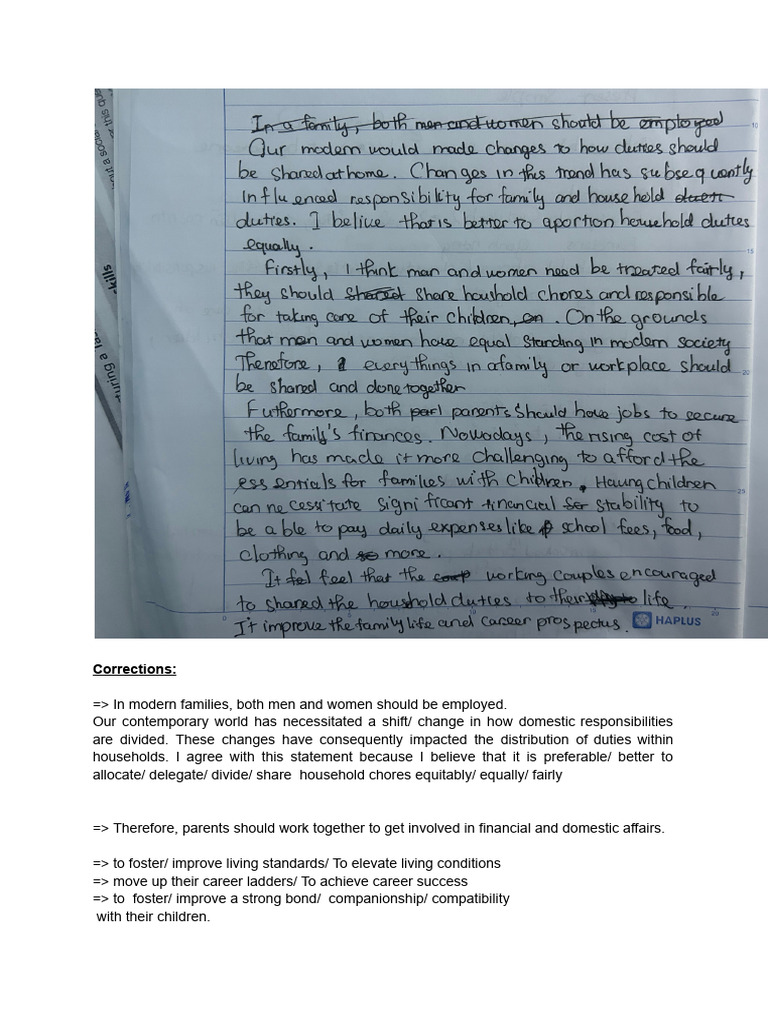 In a family, both men and women should be employed
Our modern would made changes to how duties should
be shared at home. Changes in this trend has subsequently
influenced responsibility for family and household
duties. I belive that is better to aportion household duties
equally.
Firstly, I think man and women need be treated fairly,
they should shared share houshold chores and responsible
for taking care of their children, on. On the grounds
that men and women have equal standing in modern society
Therefore, everythings in a family or workplace should
be shared and done together
Futhermore, both parents should have jobs to secure
the family's finances. Nowadays, the rising cost of
living has made it more challenging to afford the
essentials for families with children. Having children
can necessitate significant financial stability to
be able to pay daily expenses like school fees, food,
clothing and more.
It feel that the working couples encouraged
to shared the houshold duties to their life.
It improve the family life and career prospectus. HAPLUS
Corrections:
=> In modern families, both men and women should be employed.
Our contemporary world has necessitated a shift/ change in how domestic responsibilities
are divided. These changes have consequently impacted the distribution of duties within
households. I agree with this statement because I believe that it is preferable/ better to
allocate/ delegate/ divide/ share household chores equitably/ equally/ fairly
=> Therefore, parents should work together to get involved in financial and domestic affairs.
=> to foster/ improve living standards/ To elevate living conditions
=> move up their career ladders/ To achieve career success
=> to foster/ improve a strong bond/ companionship/ compatibility
with their children.